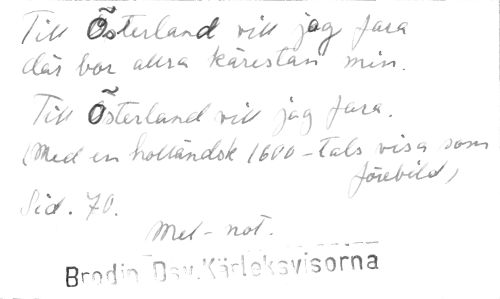 Till Österland vill jag fara
där bor allra kärestan min.
Till Österland vill jag fara.
(Med en holländsk 1600-tals visa som
förebild)
Sid. 70.
Mel-not.
Brodin Dav. Kärleksvisorna